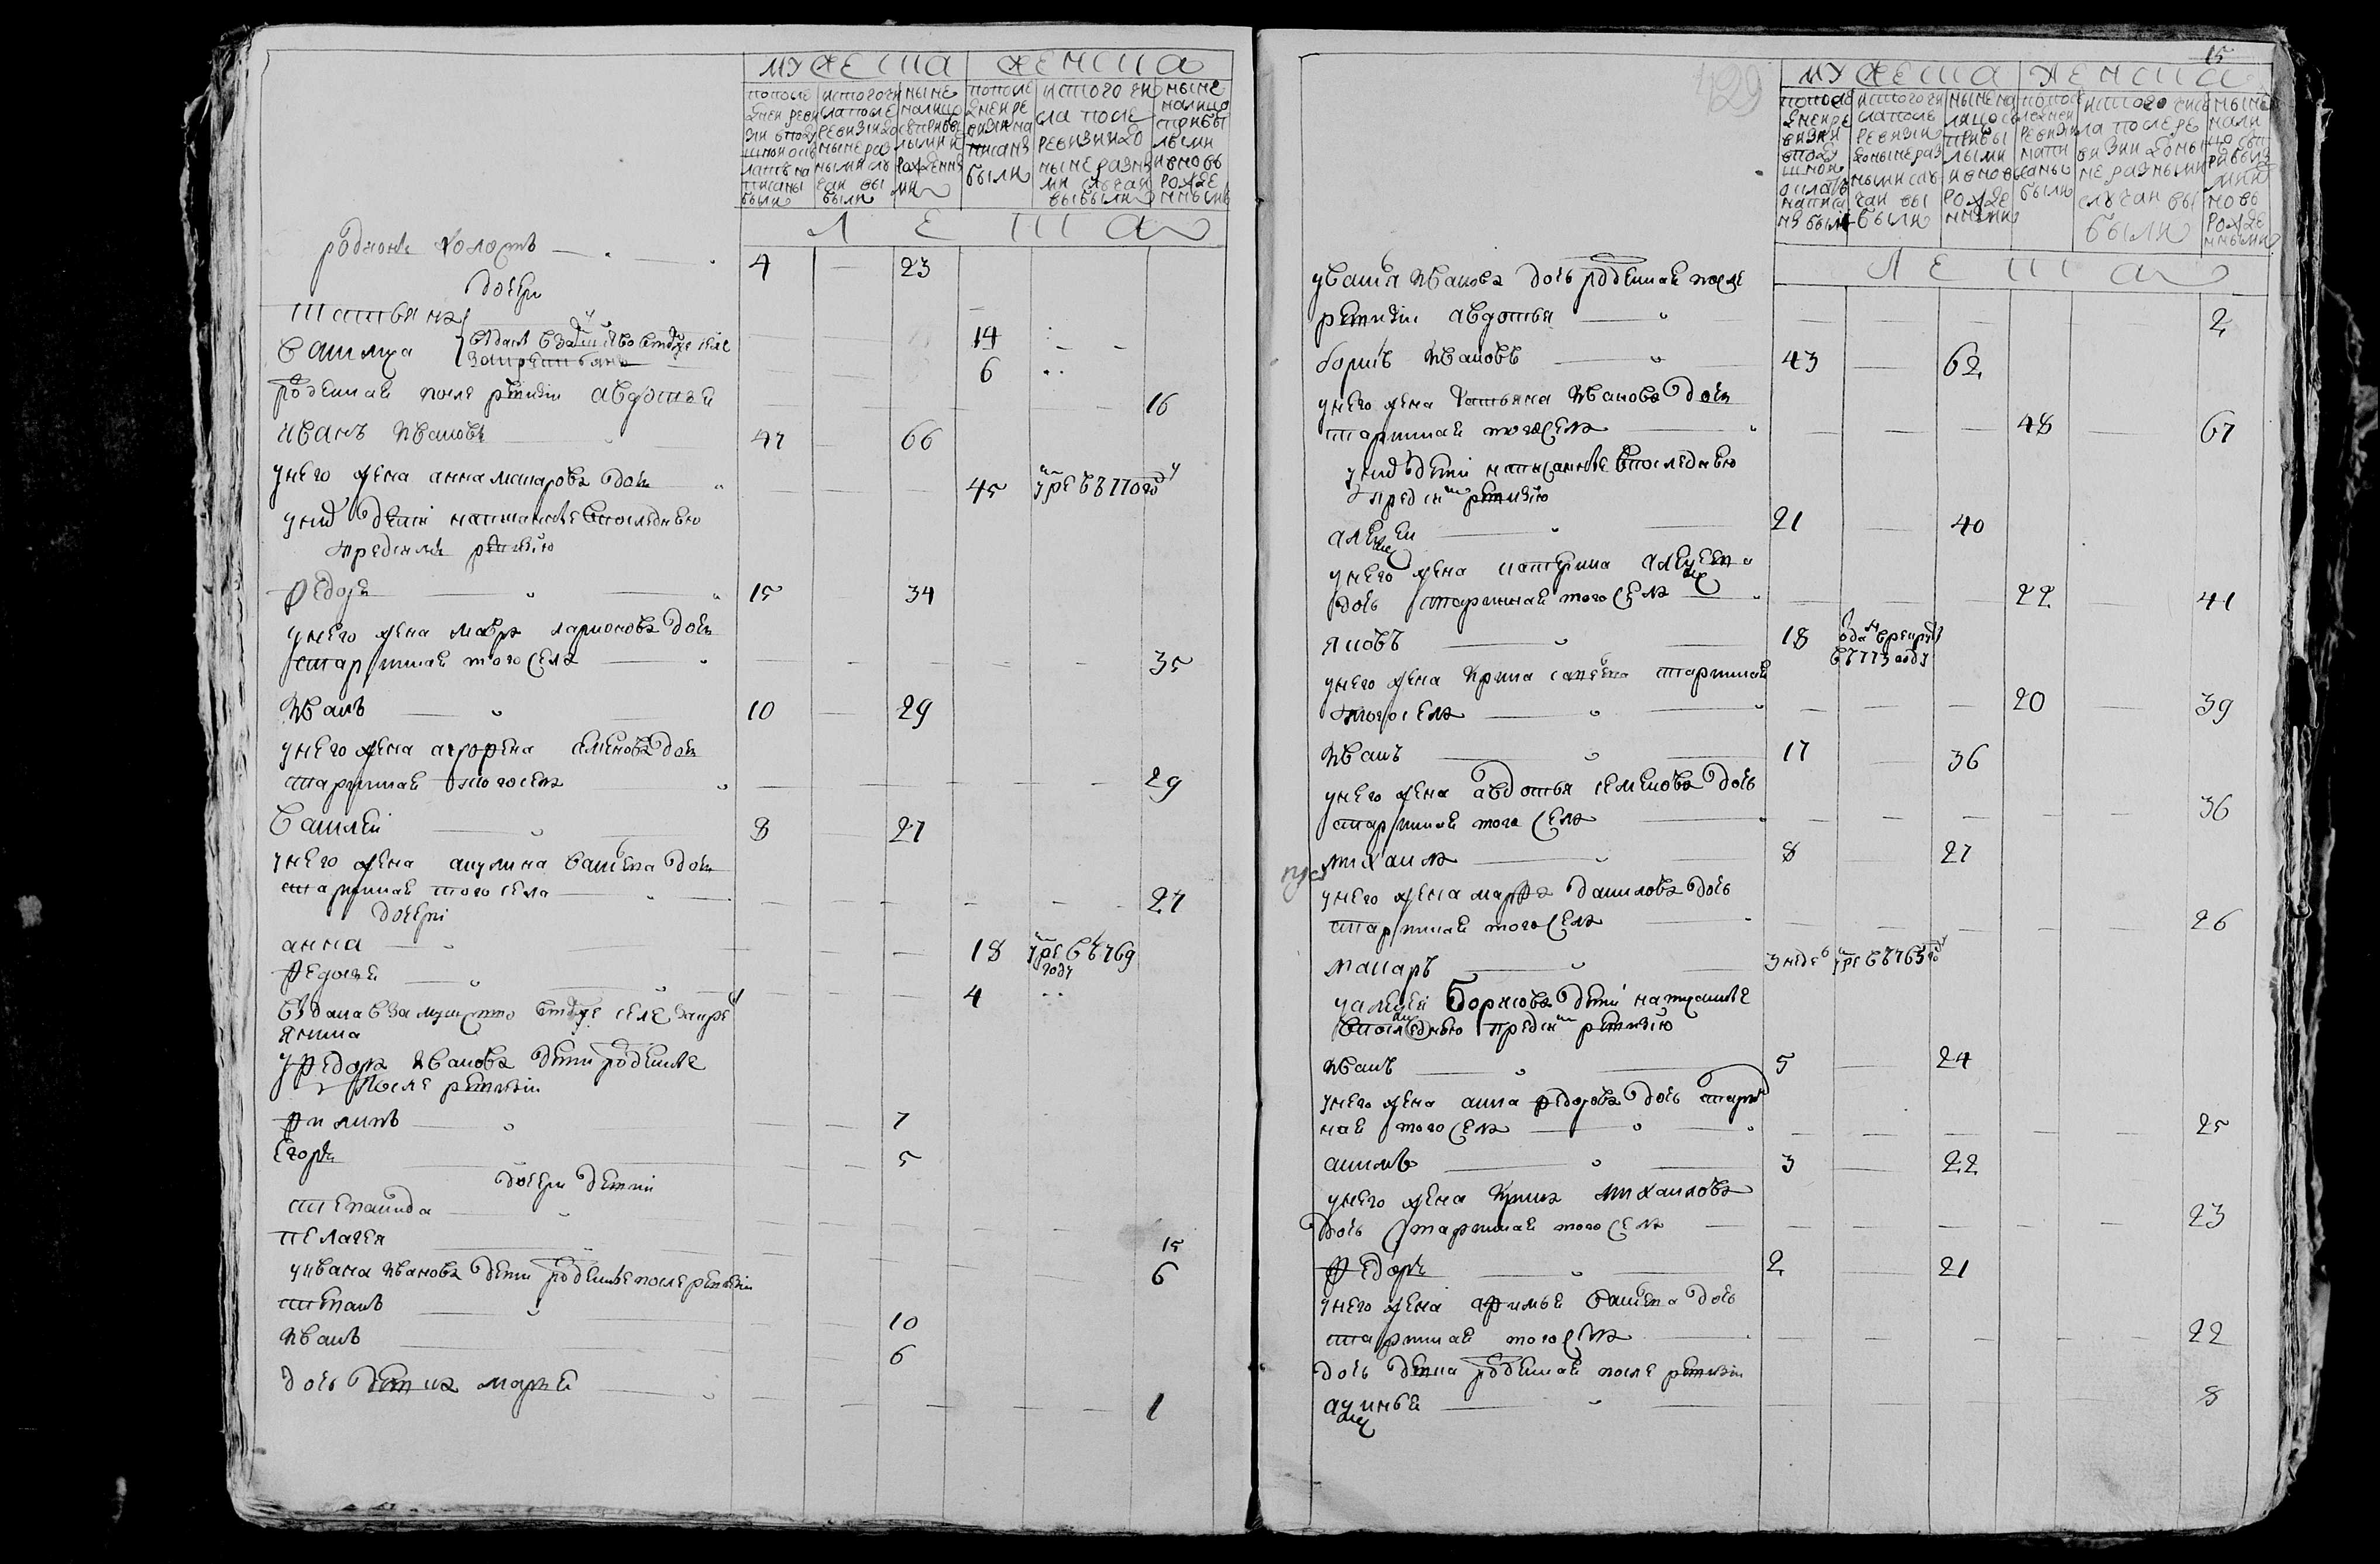 МУЖЕСКА ЖЕНСКА
пополѣдней ревизии в подушной окладъ написаны были
истого числа после ревизии до ныне разными случаи выбыли
ныне налицо с прибылыми и рожденными
пополѣдней ревизии написаны были
истого числа после ревизии до ныне разными случаи выбыли
ныне налицо с прибылыми и вновь рожденными
ЛЕТА
родионъ холостъ 4 — 23
дочери
Татьяна 14
Василиса 6
рожденная после ревизии авдотья 16
иванъ ивановъ 47 — 66
унего жена анна макарова дочь 45 умре в 1770 году
уних дети написанные в последнею
пред сию ревизию
федоръ 15 34
унего жена мавра ларионова дочь
старинная того села 35
иванъ 10 — 29
унего жена аграфена семенова дочь
старинная того села 29
василей 8 27
унего жена акулина васильева дочь
старинная того села 27
дочери
анна 18 умре в 1769 году
федосья 4
выдана в замужство в селе
уфедора иванова дети рожденные
после ревизии
филипъ 7
Егоръ 5
дочери детей
степанида 15
пелагея 6
уивана иванова дети рожденные после ревизии
степанъ 10
иванъ 6
дочь девка марья 1
15
429
МУЖЕСКА ЖЕНСКА
пополѣдней ревизии в подушной окладъ написаны были
истого числа после ревизии до ныне разными случаи выбыли
ныне налицо с прибылыми и вновь рожденными
пополѣдней ревизии написаны были
истого числа после ревизии до ныне разными случаи выбыли
ныне налицо с прибылыми и вновь рожденными
ЛЕТА
увасилья иванова дочь рожденная после
ревизии авдотья 2
борисъ ивановъ 43 — 62
унего жена татьяна иванова дочь
старинная того села 48 — 67
уних дети написанные в последнею
пред сию ревизию
алексей 21 — 40
унего жена катерина алексеева
дочь старинная того села 22 — 41
яковъ 18 отданъ в рекруты в 1773 году
унего жена ирина старинная
того села 20 — 39
иванъ 17 — 36
унего жена авдотья семенова дочь
старинная того села 36
михаила 8 — 27
унего жена марфа данилова дочь
старинная того села 26
макаръ 3 недѣ умре в 1763 году
уалексея борисова дети написанные
в последнею пред сию ревизию
иванъ 5 — 24
унего жена анна федорова дочь старин
ная того села 25
акимъ 3 — 22
унего жена ирина михайлова
дочь старинная того села 23
федоръ 2 — 21
унего жена афимья васильева дочь
старинная того села 22
дочь девка рожденная после ревизии
аксинья 8